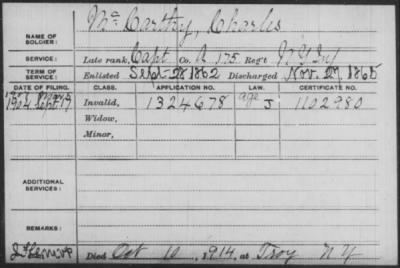 Mc Carthy, Charles
NAME OF SOLDIER:
SERVICE: Late rank, Capt Co. A 175 Reg't N.Y. Inf
TERM OF SERVICE: Enlisted Sept 28 1862 Discharged Nov. 27, 1865
DATE OF FILING. CLASS. APPLICATION NO. LAW. CERTIFICATE NO.
1904, Invalid, 1324678 age J 1102980
Widow,
Minor,
ADDITIONAL SERVICES:
REMARKS:
Died Oct 10, 1914, at Troy N Y